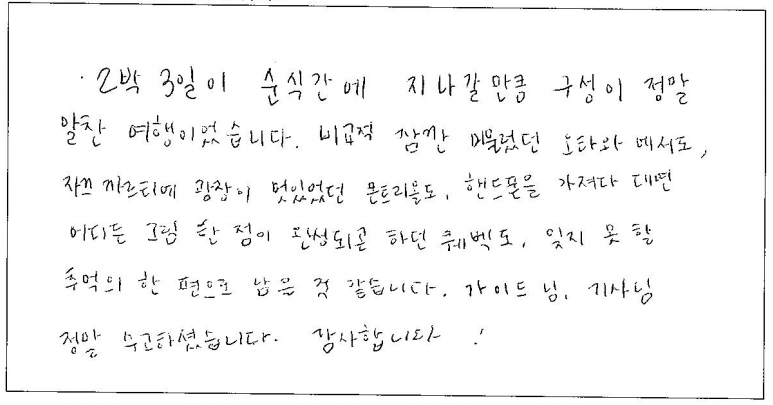 · 2박 3일이 순식간에 지나갈만큼 구성이 정말
알찬 여행이었습니다. 비교적 잠깐 머물렀던 오타와 에서도,
자끄 까르티에 광장이 멋있었던 몬트리올도, 핸드폰을 가져다 대면
어디든 그림 한 점이 완성되곤 하던 퀘벡도, 잊지 못 할
추억의 한 편으로 남은 것 같습니다. 가이드 님, 기사님
정말 수고하셨습니다. 감사합니다 !